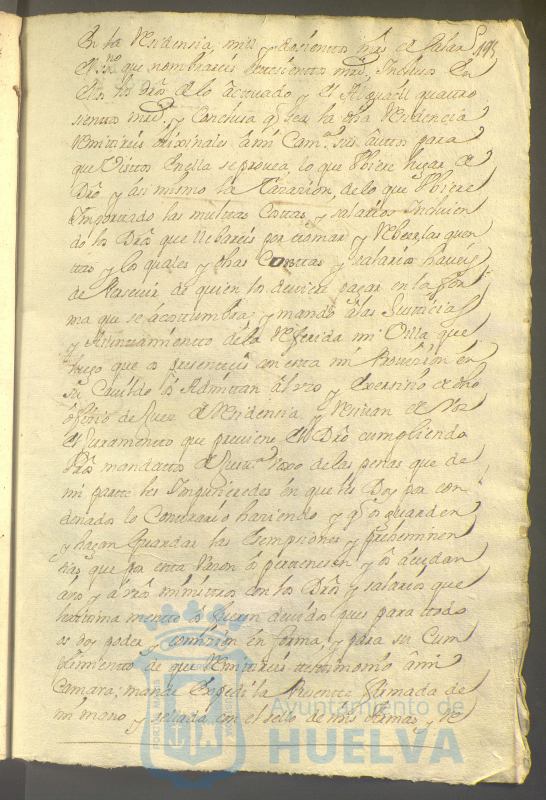 En la Residensia, mill y dosientos mrs de Plata
El ssno que nombrareis tresientos mrs, Incluso En
ellos los Dros de lo actuado y el Alguacil quattro
sientos mrs, y Conclusa q sea la dha Residencia
Remittireis orixinales a mi Camª sus auttos para
que Vistos En ella se provea, lo que Vbiere lugar de
Dro y asimismo la tasasion, de lo que Vbiere
Importado las multtas Costtas, y salarios Incluien
do los Dros que llebareis por tomar y Veer las quen
ttas y los quales y dhas Costtas y salarios haveis
de de quien los deviere pagar en la for
ma que se acostumbra; y mando á las Justicias
y Aiuntamientto de la Referida mi Villa que
luego que os presenteis con esta mi Provision en
su Cavildo ós Admittan al vzo y Exersisio de dho
ófisio de Juez de Residensia y Resivan de Vos
El Juramentto que previene El Dro cumpliendo
mandatto vaxo de las penas que de
mi parte les Impusieredes en que les Doy por con
denados lo Conttrario haziendo y q os guarden
y hagan Guardar las Exempsiones y preheminen
sias que por estta Razon ós perttenesen y ós acudan
á vos y á vros ministtros con los Dros y salarios que
lexittima mentte ós fueren devidos que para ttodo
os doy poder y comision en forma, y para su Cum
plimientto de que Remittireis testtimonio á mi
Camara; mande Expedir la Presentte firmada de
mi mano y sellada con el sello de mis Armas y Re
Ayuntamiento de
HUELVA